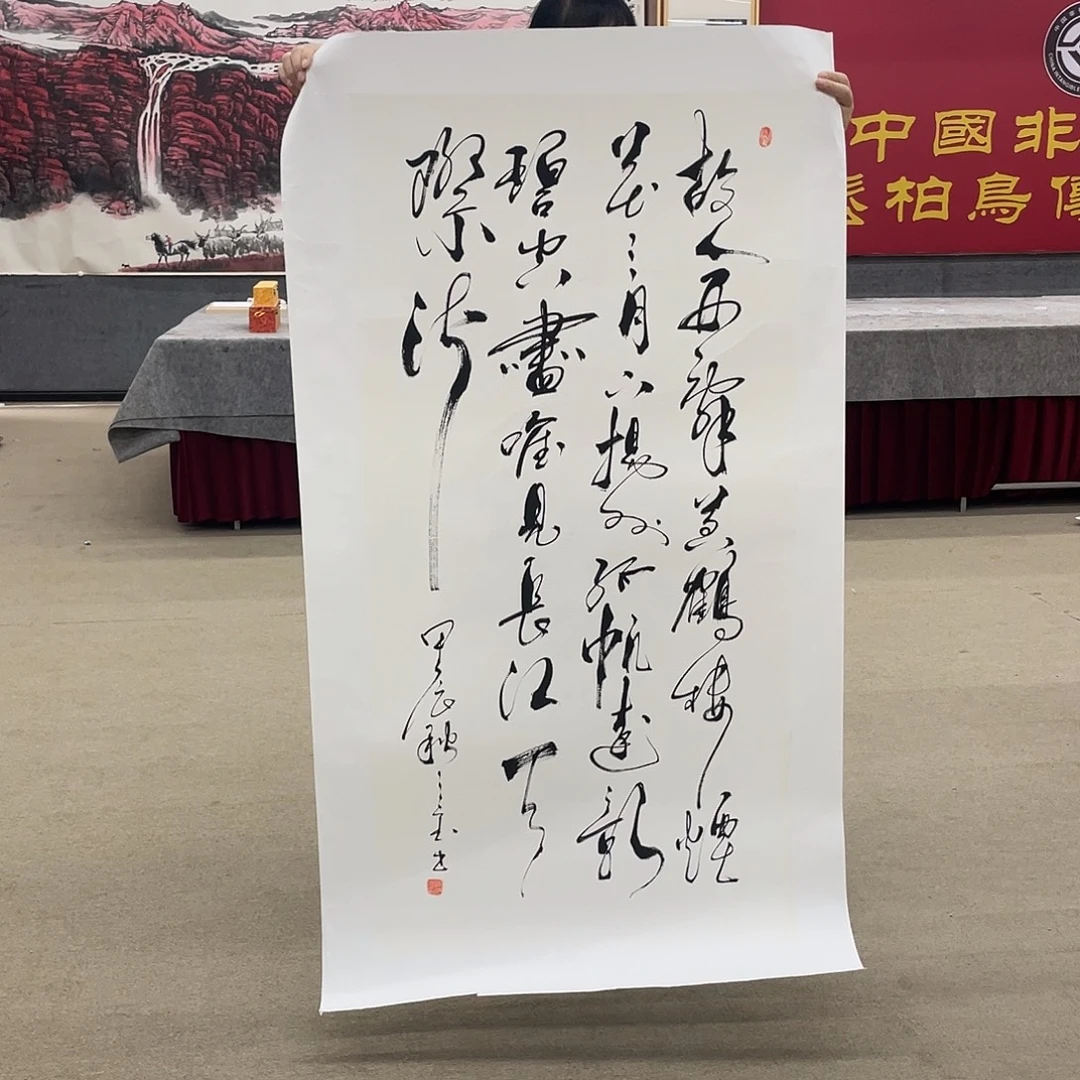 故人西辭黄鶴樓煙
花三月下揚州孤帆遠影
碧空盡唯見長江天
際流
甲辰秋
中國非
柏鳥
CHINA INTANGIBLE